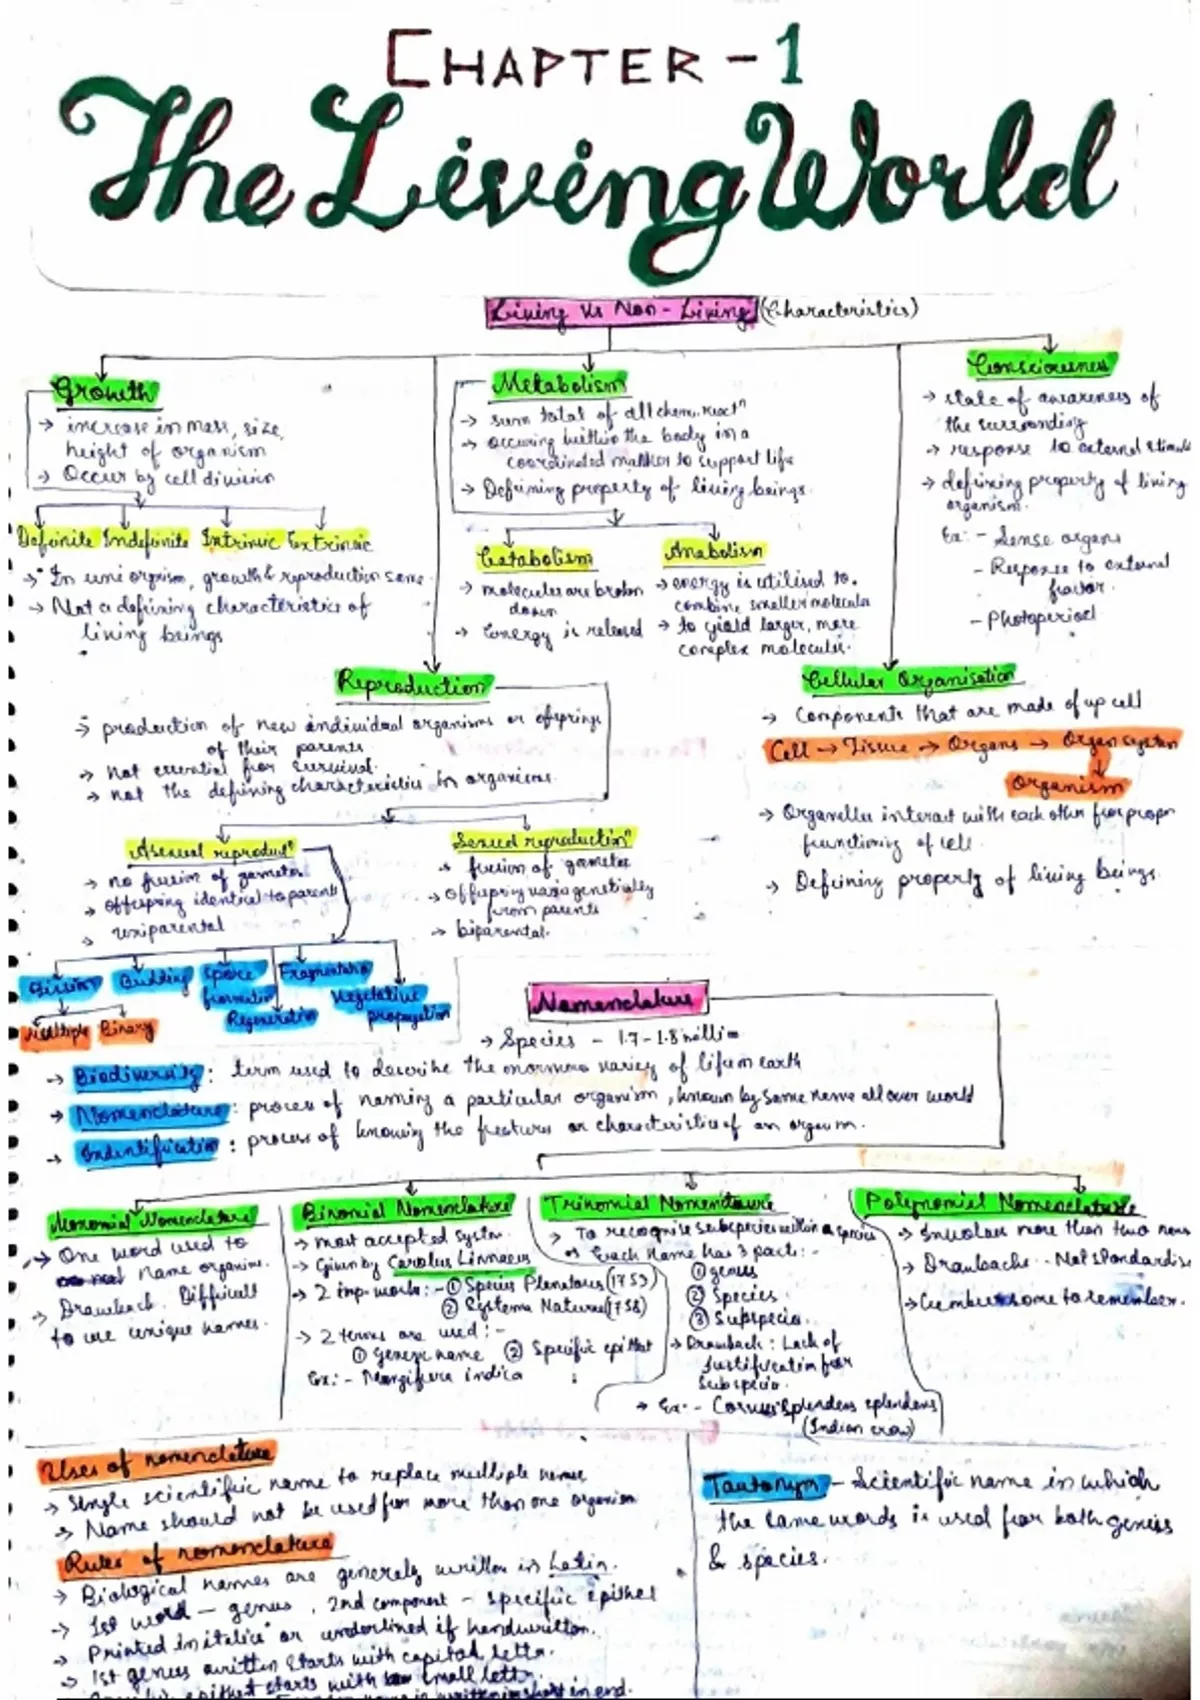 CHAPTER - 1
The Living World
Living Vs Non-Living (Characteristics)
Growth
→ increase in mass, size,
height of organism
→ Occur by cell division
Definite Indefinite Intrinsic Extrinsic
→ In uni orgnism, growth & reproduction same
→ Not a defining characteristics of
living beings
Metabolism
→ sum total of all chem. react^n
→ occuring within the body in a
coordinated matter to support life
→ Defining property of living beings.
Catabolism
→ molecules are broken
down
→ Energy is released
Anabolism
→ energy is utilised to
combine smaller molecules
→ to yield larger, more
complex molecules.
Consciousness
→ state of awareness of
the surrounding
→ response to external stimuli
→ defining property of living
organism.
Ex: - Sense organs
- Response to external
factor.
- Photoperiod
Reproduction
→ production of new individual organisms or offsprings
of their parents
→ not essential for survival.
→ not the defining characteristics in organisms.
Asexual reproduct^n
→ no fusion of gametes
→ offspring identical to parent
→ uniparental
Sexual reproduction
→ fusion of gametes
→ offspring varies genetically
from parents
→ biparental.
Fission Budding Spore
formation Fragmentation
Regeneration Vegetative
propagation
Multiple Binary
Cellular Organisation
→ Components that are made of up cell
Cell → Tissue → Organs → Organ system
Organism
→ Organelles interact with each other for proper
functioning of cell.
→ Defining property of living beings.
Nomenclature
→ Species - 1.7-1.8 million
→ Biodiversity: term used to describe the enormous variety of life on earth
→ Nomenclature: process of naming a particular organism, known by same name all over world
→ Indentification: process of knowing the features or characteristics of an
Monomial Nomenclature
→ One word used to
name organism.
→ Drawback. Difficult
to use unique names.
Binomial Nomenclature
→ most accepted system
→ Given by Carolus Linnaeus
→ 2 imp. works: - ① Species Plantarum (1753)
② Systema Naturae (1758)
→ 2 terms are used: -
① generic name ② Specific epithet
Ex: - Mangifera indica
Trinomial Nomenclature
→ To recognise subspecies within a species
→ Each name has 3 parts: -
① genus
② species
③ subspecies
→ Drawback: Lack of
justification for
subspecies.
→ Ex: - Corvus splendens splendens
(Indian crow)
Polynomial Nomenclature
→ Involves more than two
→ Drawbacks: - Not standardise
→ Cumbersome to remember.
Uses of nomenclature
→ Single scientific name to replace multiple names
→ Name should not be used for more than one organism
Rules of nomenclature
→ Biological names are generally written in Latin.
→ 1st word - genus, 2nd component - specific epithet
→ Printed in italics or underlined if handwritten.
→ 1st genus written starts with capital letter.
epithet starts with small letter.
in short in end.
Tautonym - Scientific name in which
the same words is used for both genus
& species.